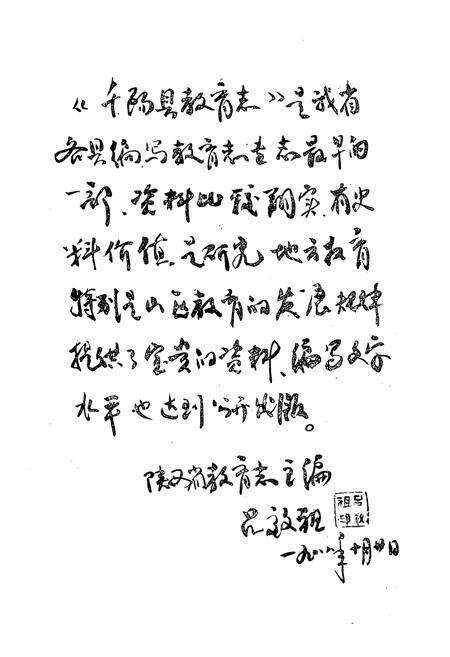 《千阳县教育志》是我省
各县编写教育志专志最早的
一部、资料比较翔实、有史
料价值、是研究地方教育
特别是山区教育的发展规律
提供了宝贵的资料、编写文字
水平也达到公开出版。
陕西省教育志主编
吕效祖
一九八八年十月廿日